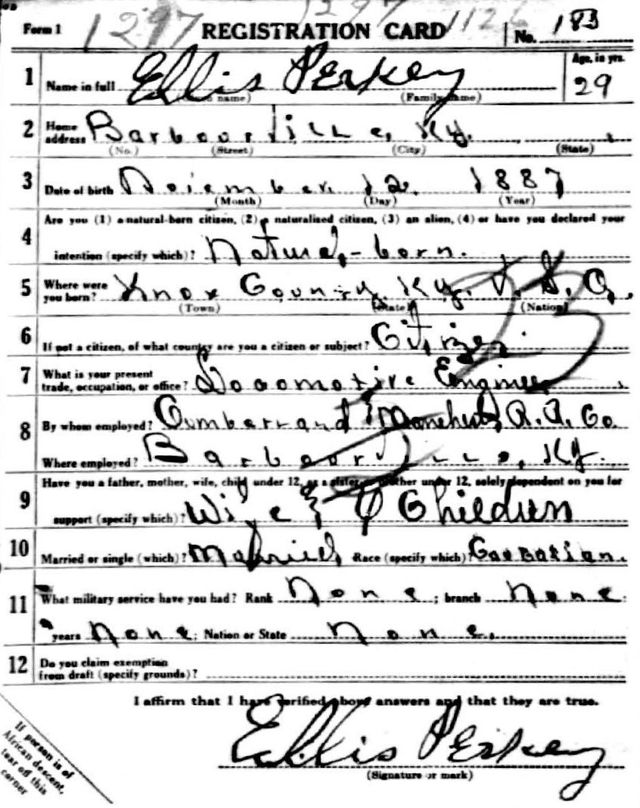 Form 1 1297 1297 1126 REGISTRATION CARD No. 183
1 Name in full Ellis Perkey Age, in yrs. 29
(Given name) (Family name)
2 Home address Barbourville, Ky.
(No.) (Street) (City) (State)
3 Date of birth November 12 1887
(Month) (Day) (Year)
4 Are you (1) a natural-born citizen, (2) a naturalized citizen, (3) an alien, (4) or have you declared your
intention (specify which)? Natural-born.
5 Where were you born? Knox County, Ky. U.S.A.
(Town) (State) (Nation)
6 If not a citizen, of what country are you a citizen or subject? Citizen.
7 What is your present trade, occupation, or office? Locomotive Engineer
8 By whom employed? Cumberland & Manchester R.R. Co
Where employed? Barbourville, Ky.
9 Have you a father, mother, wife, child under 12, or a sister or brother under 12, solely dependent on you for
support (specify which)? Wife & Children
10 Married or single (which)? Married Race (specify which)? Caucasian.
11 What military service have you had? Rank None ; branch None
years None ; Nation or State None.
12 Do you claim exemption from draft (specify grounds)?
I affirm that I have verified above answers and that they are true.
Ellis Perkey
(Signature or mark)
If person is of
African descent,
tear off this
corner